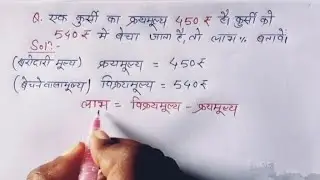 Q. एक कुर्सी का क्रयमूल्य 450₹ है। कुर्सी को
540₹ में बेचा जाता है, तो लाभ% बतावें।
Solⁿ:-
(खरीदारी मूल्य) क्रयमूल्य = 450₹
(बेचनेवालामूल्य) विक्रयमूल्य = 540₹
लाभ = विक्रयमूल्य - क्रयमूल्य